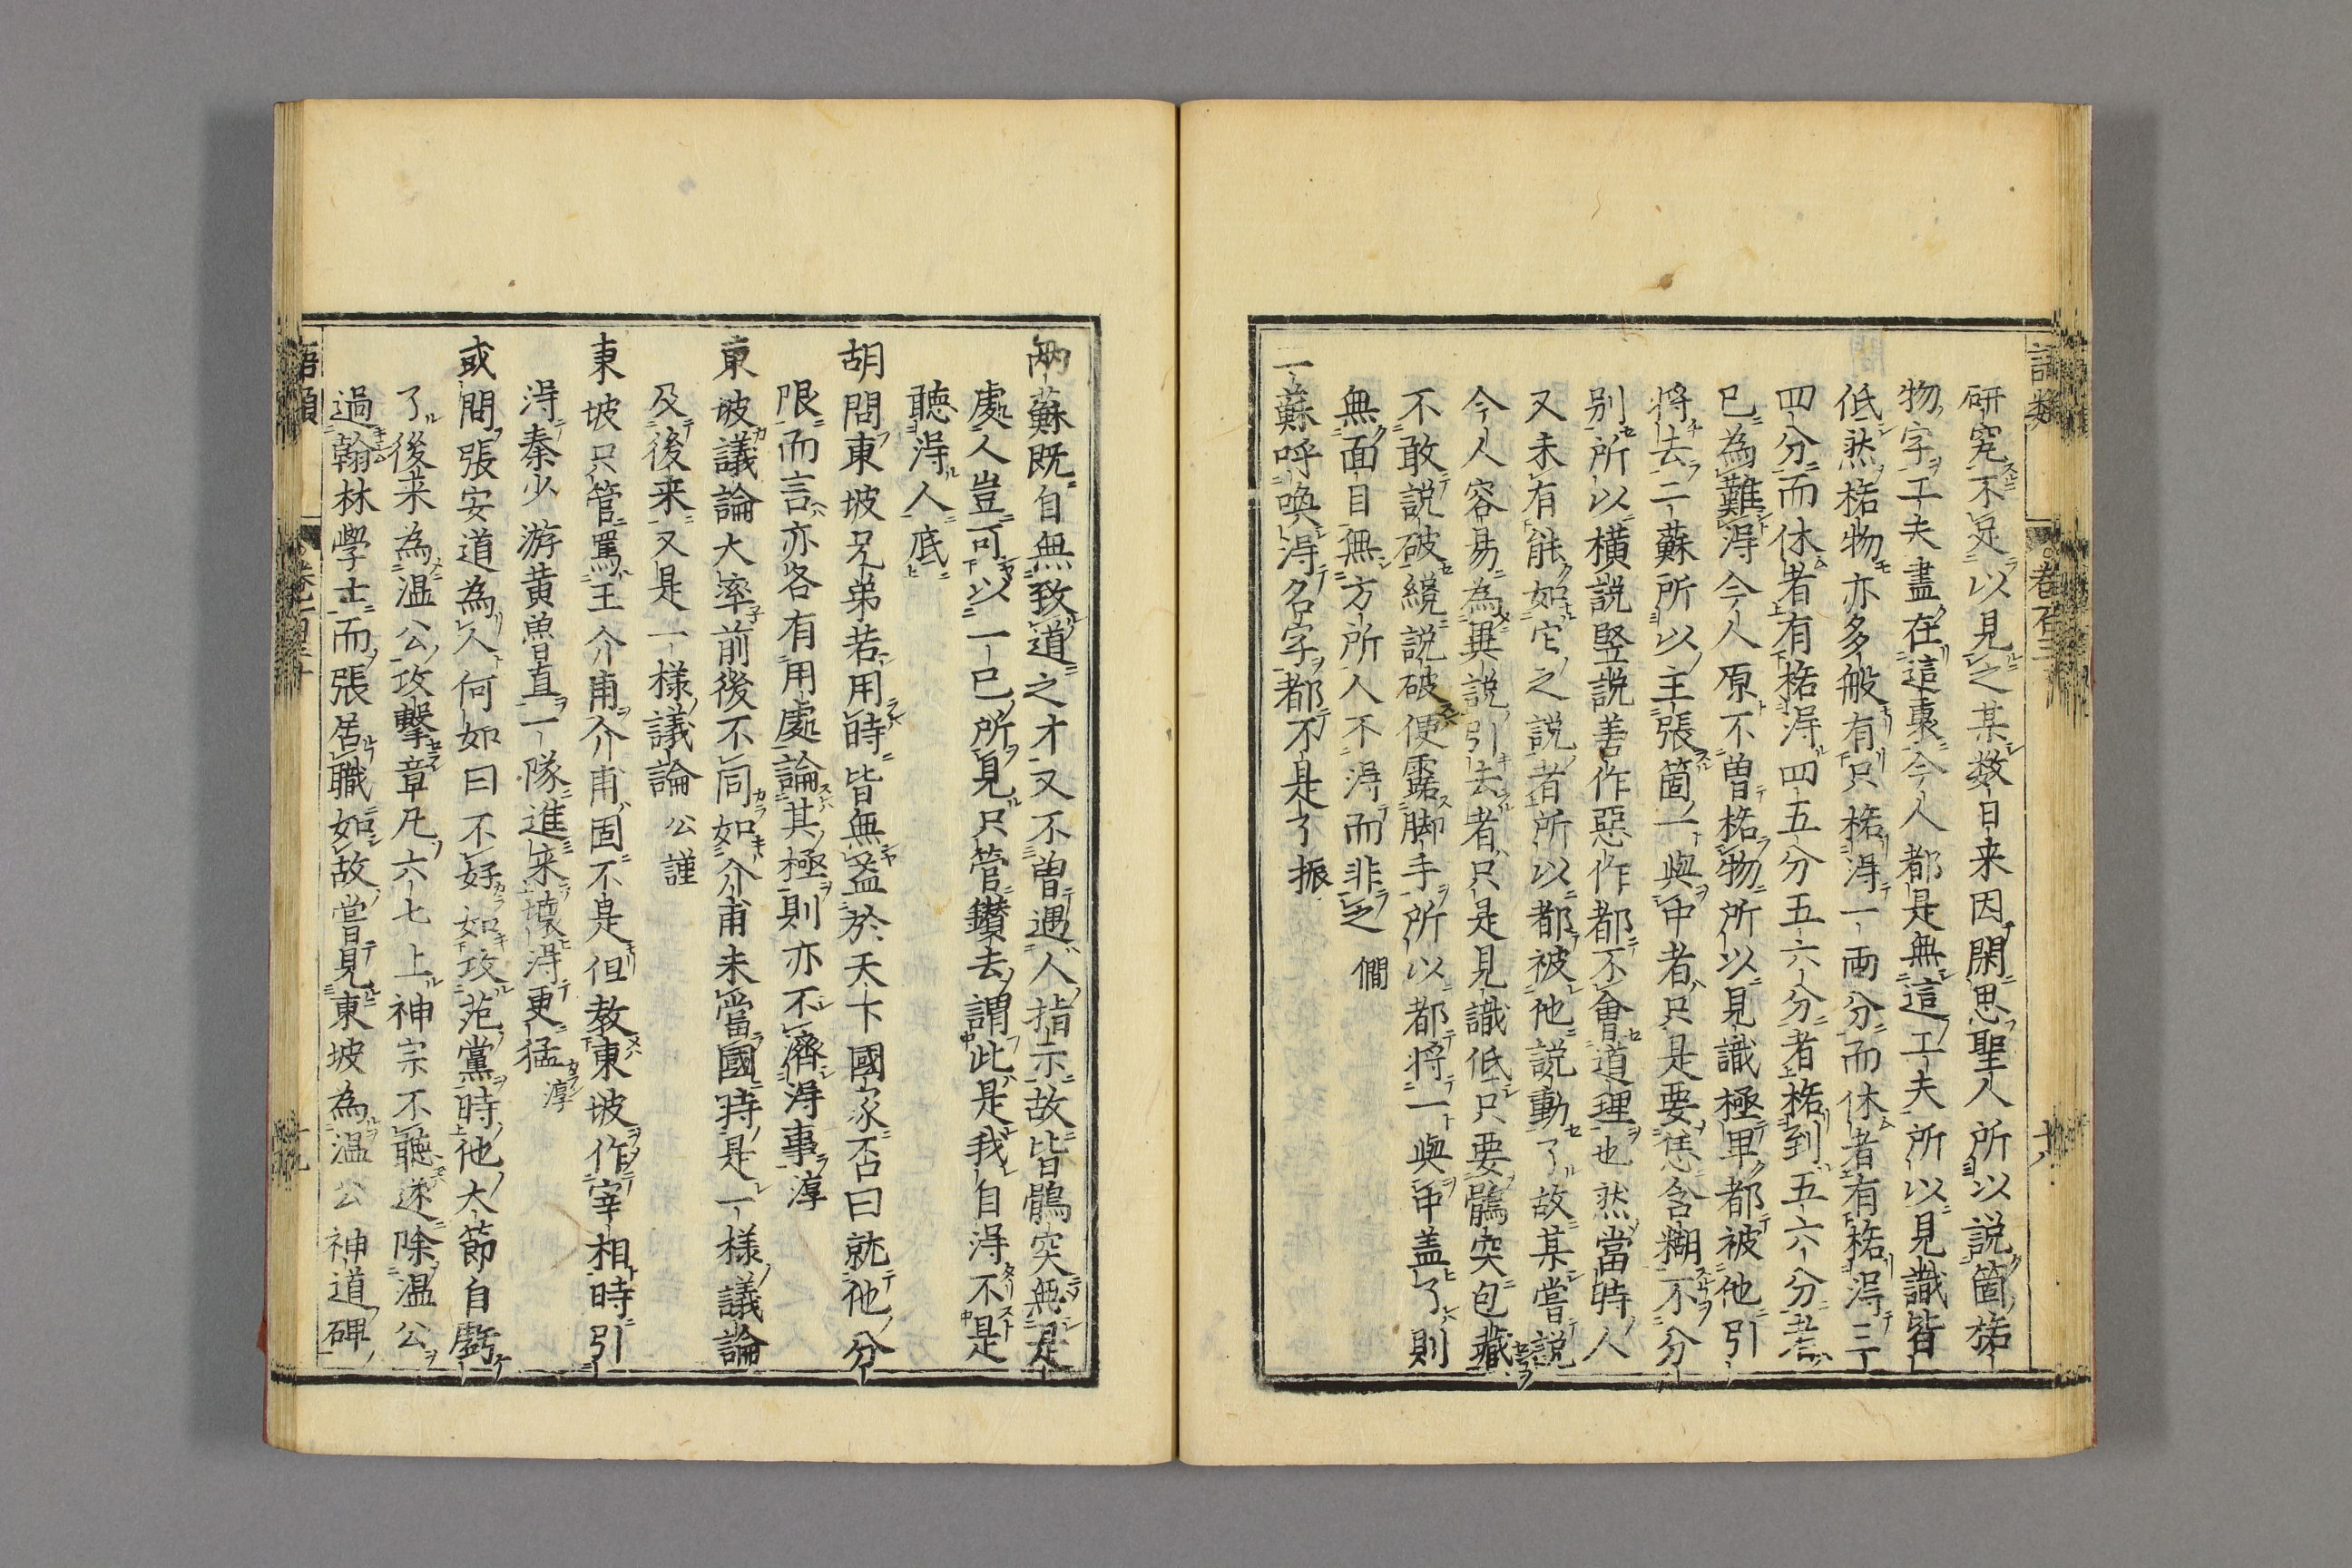 研究不足以見之某数日来因閑思聖人所以説箇格
物字工夫盡在這裏今人都是無這工夫所以見識皆
低然格物亦多般有只格得一両分而休者有格得三
四分而休者有格得四五分五六分者格到五六分者
已為難得今人原不曽格物所以見識極卑都被他引
将去二蘇所以主張箇一與中者只是要恁含糊不分
别所以横説竪説善作惡作都不會道理也然當時人
又未有能如它之説者所以都被他説動了故某嘗説
今人容易為異説引去者只是見識低只要鶻突包藏
不敢説破纔説破便露脚手所以都将一與中盖了則
無面目無方所人不得而非之 僩
二蘇呼喚得名字都不是了 振
兩蘇既自無致道之才又不曽遇人指示故皆鶻突無是
處人豈可以一己所見只管鑚去謂此是我自得不是
聽得人底
胡問東坡兄弟若用時皆無益於天下國家否曰就他分
限而言亦各有用處論其極則亦不濟得事 淳
東坡議論大率前後不同如介甫未當國時是一様議論
及後来又是一様議論 公謹
東坡只管罵王介甫介甫固不是但教東坡作宰相時引
得秦少游黄魯直一隊進来壊得更猛 淳
或問張安道為人何如曰不好如攻范黨時他大節自虧
了後来為温公攻撃章凡六七上神宗不聽遂除温公
過翰林學士而張居職如故嘗見東坡為温公神道碑